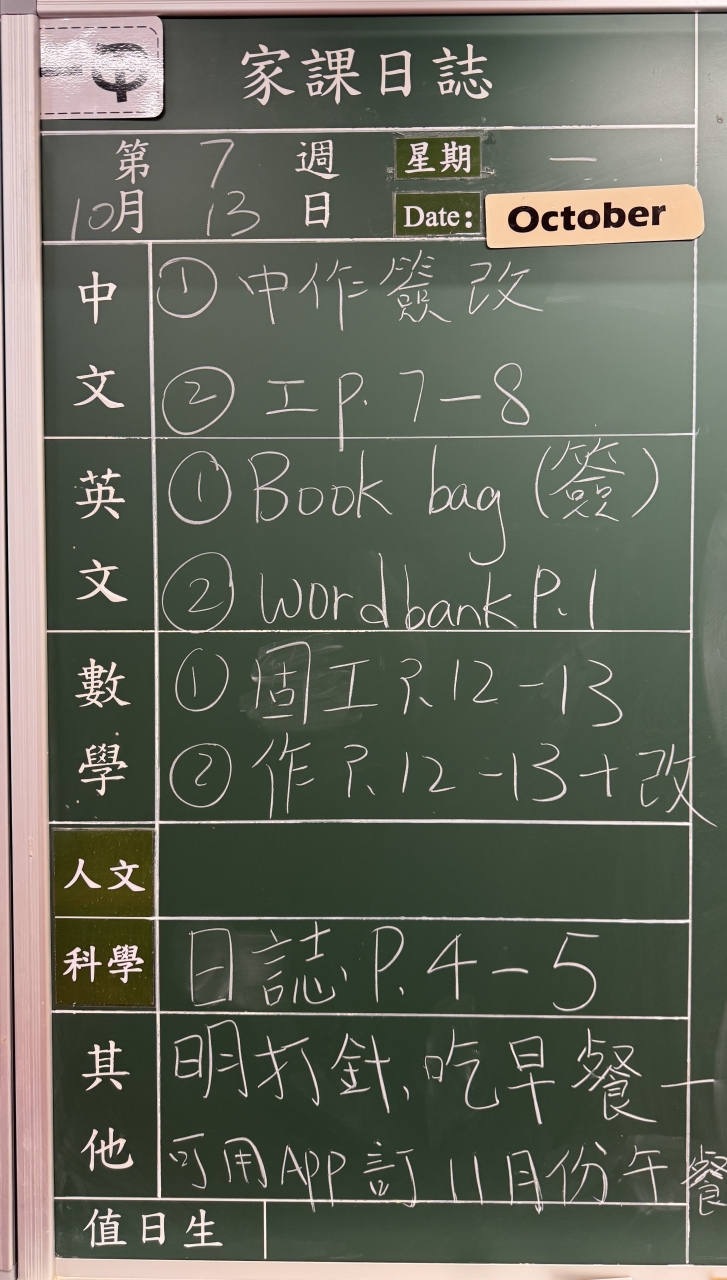 一甲
家課日誌
第 7 週 星期 一
10月 13 日 Date: October
中文
① 中作簽改
② 工 P. 7-8
英文
① Book bag (簽)
② Word bank P. 1
數學
① 固工 P. 12-13
② 作 P. 12-13+改
人文
科學
日誌 P. 4-5
其他
明打針、吃早餐
可用APP訂11月份午餐
值日生